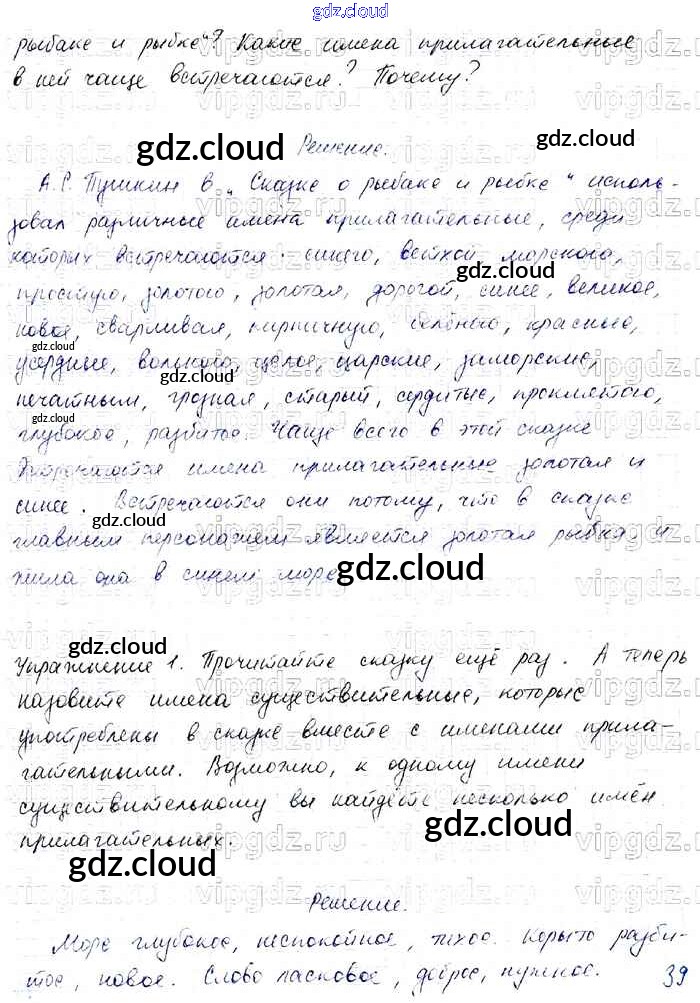 gdz.cloud
рыбаке и рыбке"? Какие имена прилагательные
в ней чаще встречаются? Почему?
Решение.
А.С. Пушкин в „Сказке о рыбаке и рыбке" исполь-
зовал различные имена прилагательные, среди
которых встречаются: синего, ветхой, морского,
простую, золотого, золотая, дорогой, синее, великое,
новое, сварливая, кирпичную, белёною, красные,
усердные, вольного, целое, царские, заморские,
печатным, грозная, старый, сердитые, проклятою,
глубокое, разбитое. Чаще всего в этой сказке
встречаются имена прилагательные золотая и
синее. Встречаются они потому, что в сказке
главным персонажем является золотая рыбка и
жила она в синем море.
Упражнение 1. Прочитайте сказку ещё раз. А теперь
назовите имена существительные, которые
употреблены в сказке вместе с именами прила-
гательными. Возможно, к одному имени
существительному вы найдёте несколько имён
прилагательных.
Решение.
Море глубокое, неспокойное, тихое. Корыто разби-
тое, новое. Слово ласковое, доброе, нужное.
39